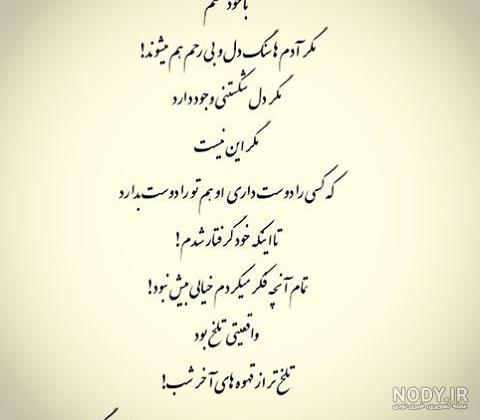 با خود گفتم
مگر آدم ها سنگ دل و بی رحم هم میشوند!
مگر دل شکستنی وجود دارد
مگر این نیست
که کسی را دوست داری او هم تو را دوست بدارد
تا اینکه خود گرفتار شدم!
تمام آنچه فکر میکردم خیالی بیش نبود!
واقعیتی تلخ بود
تلخ تر از قهوه های آخر شب!
NODY.IR